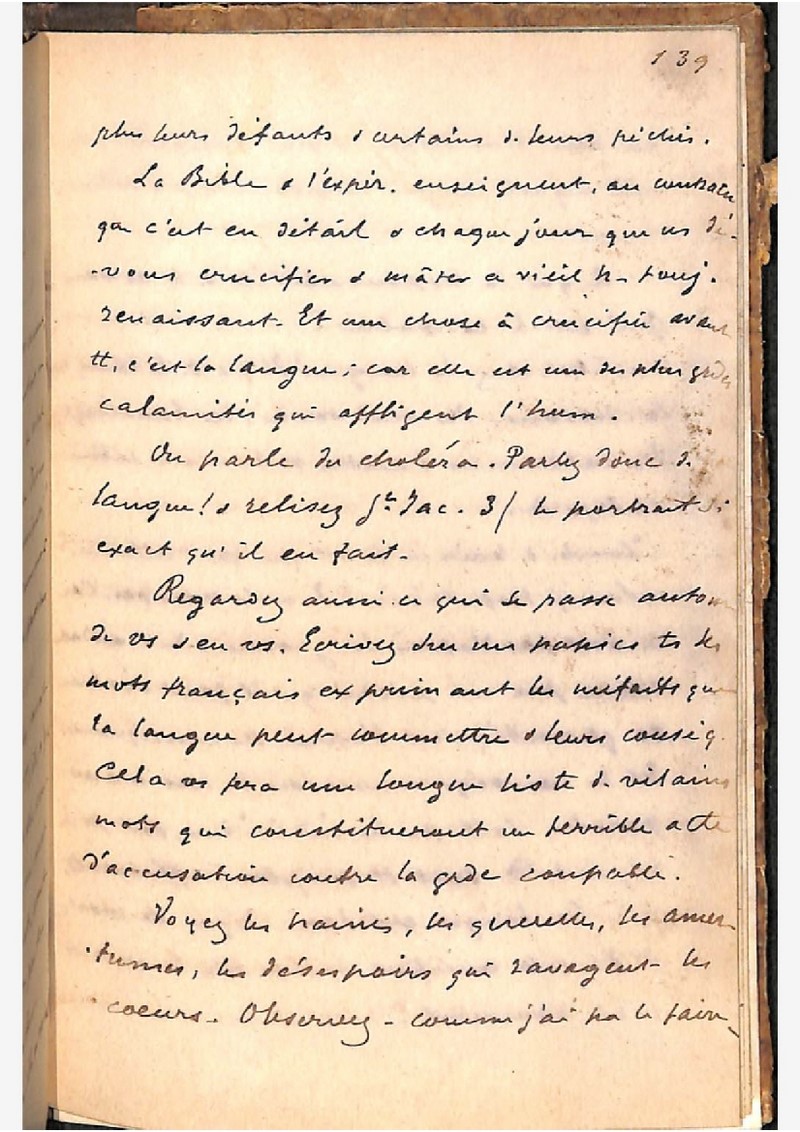 139
plus leurs défauts & certains d. leurs péchés.
La Bible & l'expér. enseignent, au contraire
que c'est en détail & chaque jour que ns de-
-vons crucifier & mâter ce vieil h- touj.
renaissant. Et une chose à crucifier avant
tt, c'est la langue; car elle est une des plus grdes
calamités qui affligent l'hum.
On parle du choléra. Parlez donc de
langue! & relisez St Jac. 3/ le portrait si
exact qu'il en fait.
Regardez aussi ce qui se passe autour
de vs & en vs. Ecrivez sur un papier ts les
mots français exprimant les méfaits que
la langue peut commettre & leurs conséq.
Cela vs fera une longue liste d. vilains
mots qui constitueront un terrible acte
d'accusation contre la grde coupable.
Voyez les haines, les querelles, les amer-
-tumes, les désespoirs qui ravagent les
coeurs. Observez - comme j'ai pu le faire